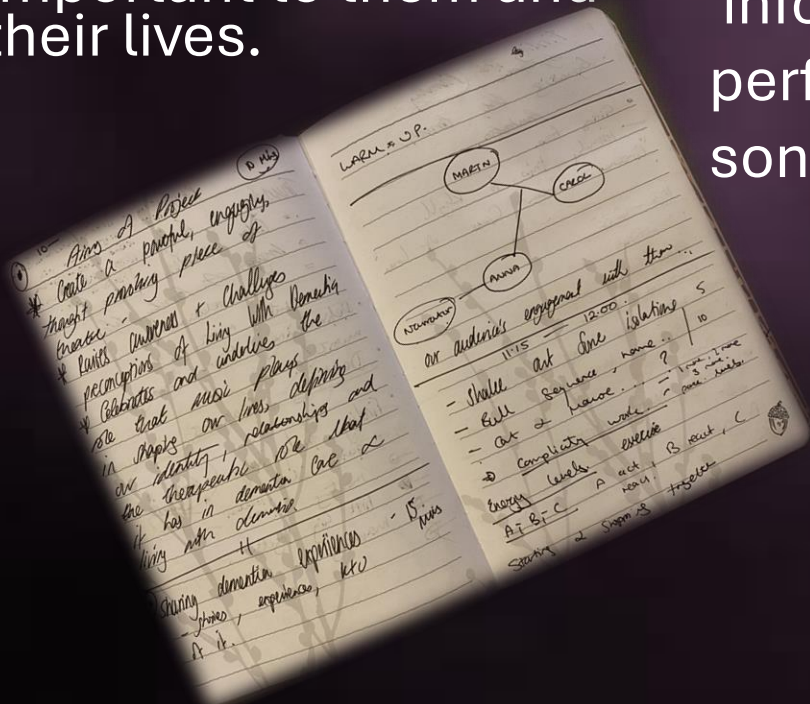 important to them and
their lives.
info
perf
son
10 Mins
10-
Aims of Project
* Create a powerful, engaging,
thought provoking piece of
theatre -
* Raises awareness + challenges
preconceptions of living with Dementia
* Celebrates and underlines the
role that music plays
in shaping our lives, defining
our identity, relationships and
the therapeutic role that
it has in dementia care &
living with dementia
Sharing dementia experiences - 15 mins
- stories, experiences,
it.
WARM UP.
MARTIN
CAROL
ANNA
Narrator
our audience's engagement with them...
11:15 - 12:00.
- Shake out and isolations 5
- Ball sequence, name.. 10
- Cat & mouse.... ?
complicity work.
Energy levels exercise
A, B, C A act, B react, C
Starting & stopping together